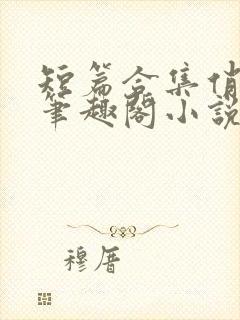 短篇合集俏
笔趣阁小说
穆厝